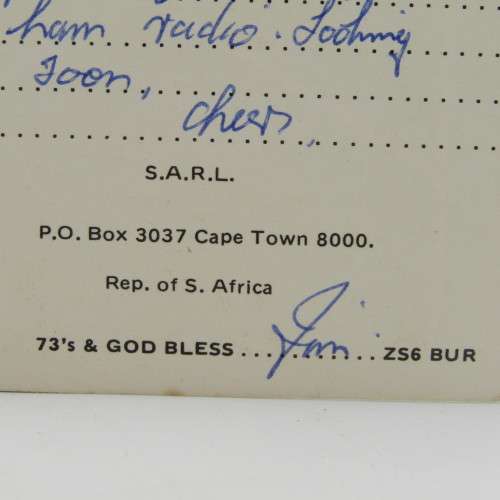 ham radio. Looking
soon,
cheers,
S.A.R.L.
P.O. Box 3037 Cape Town 8000.
Rep. of S. Africa
73's & GOD BLESS ... Jim ... ZS6 BUR